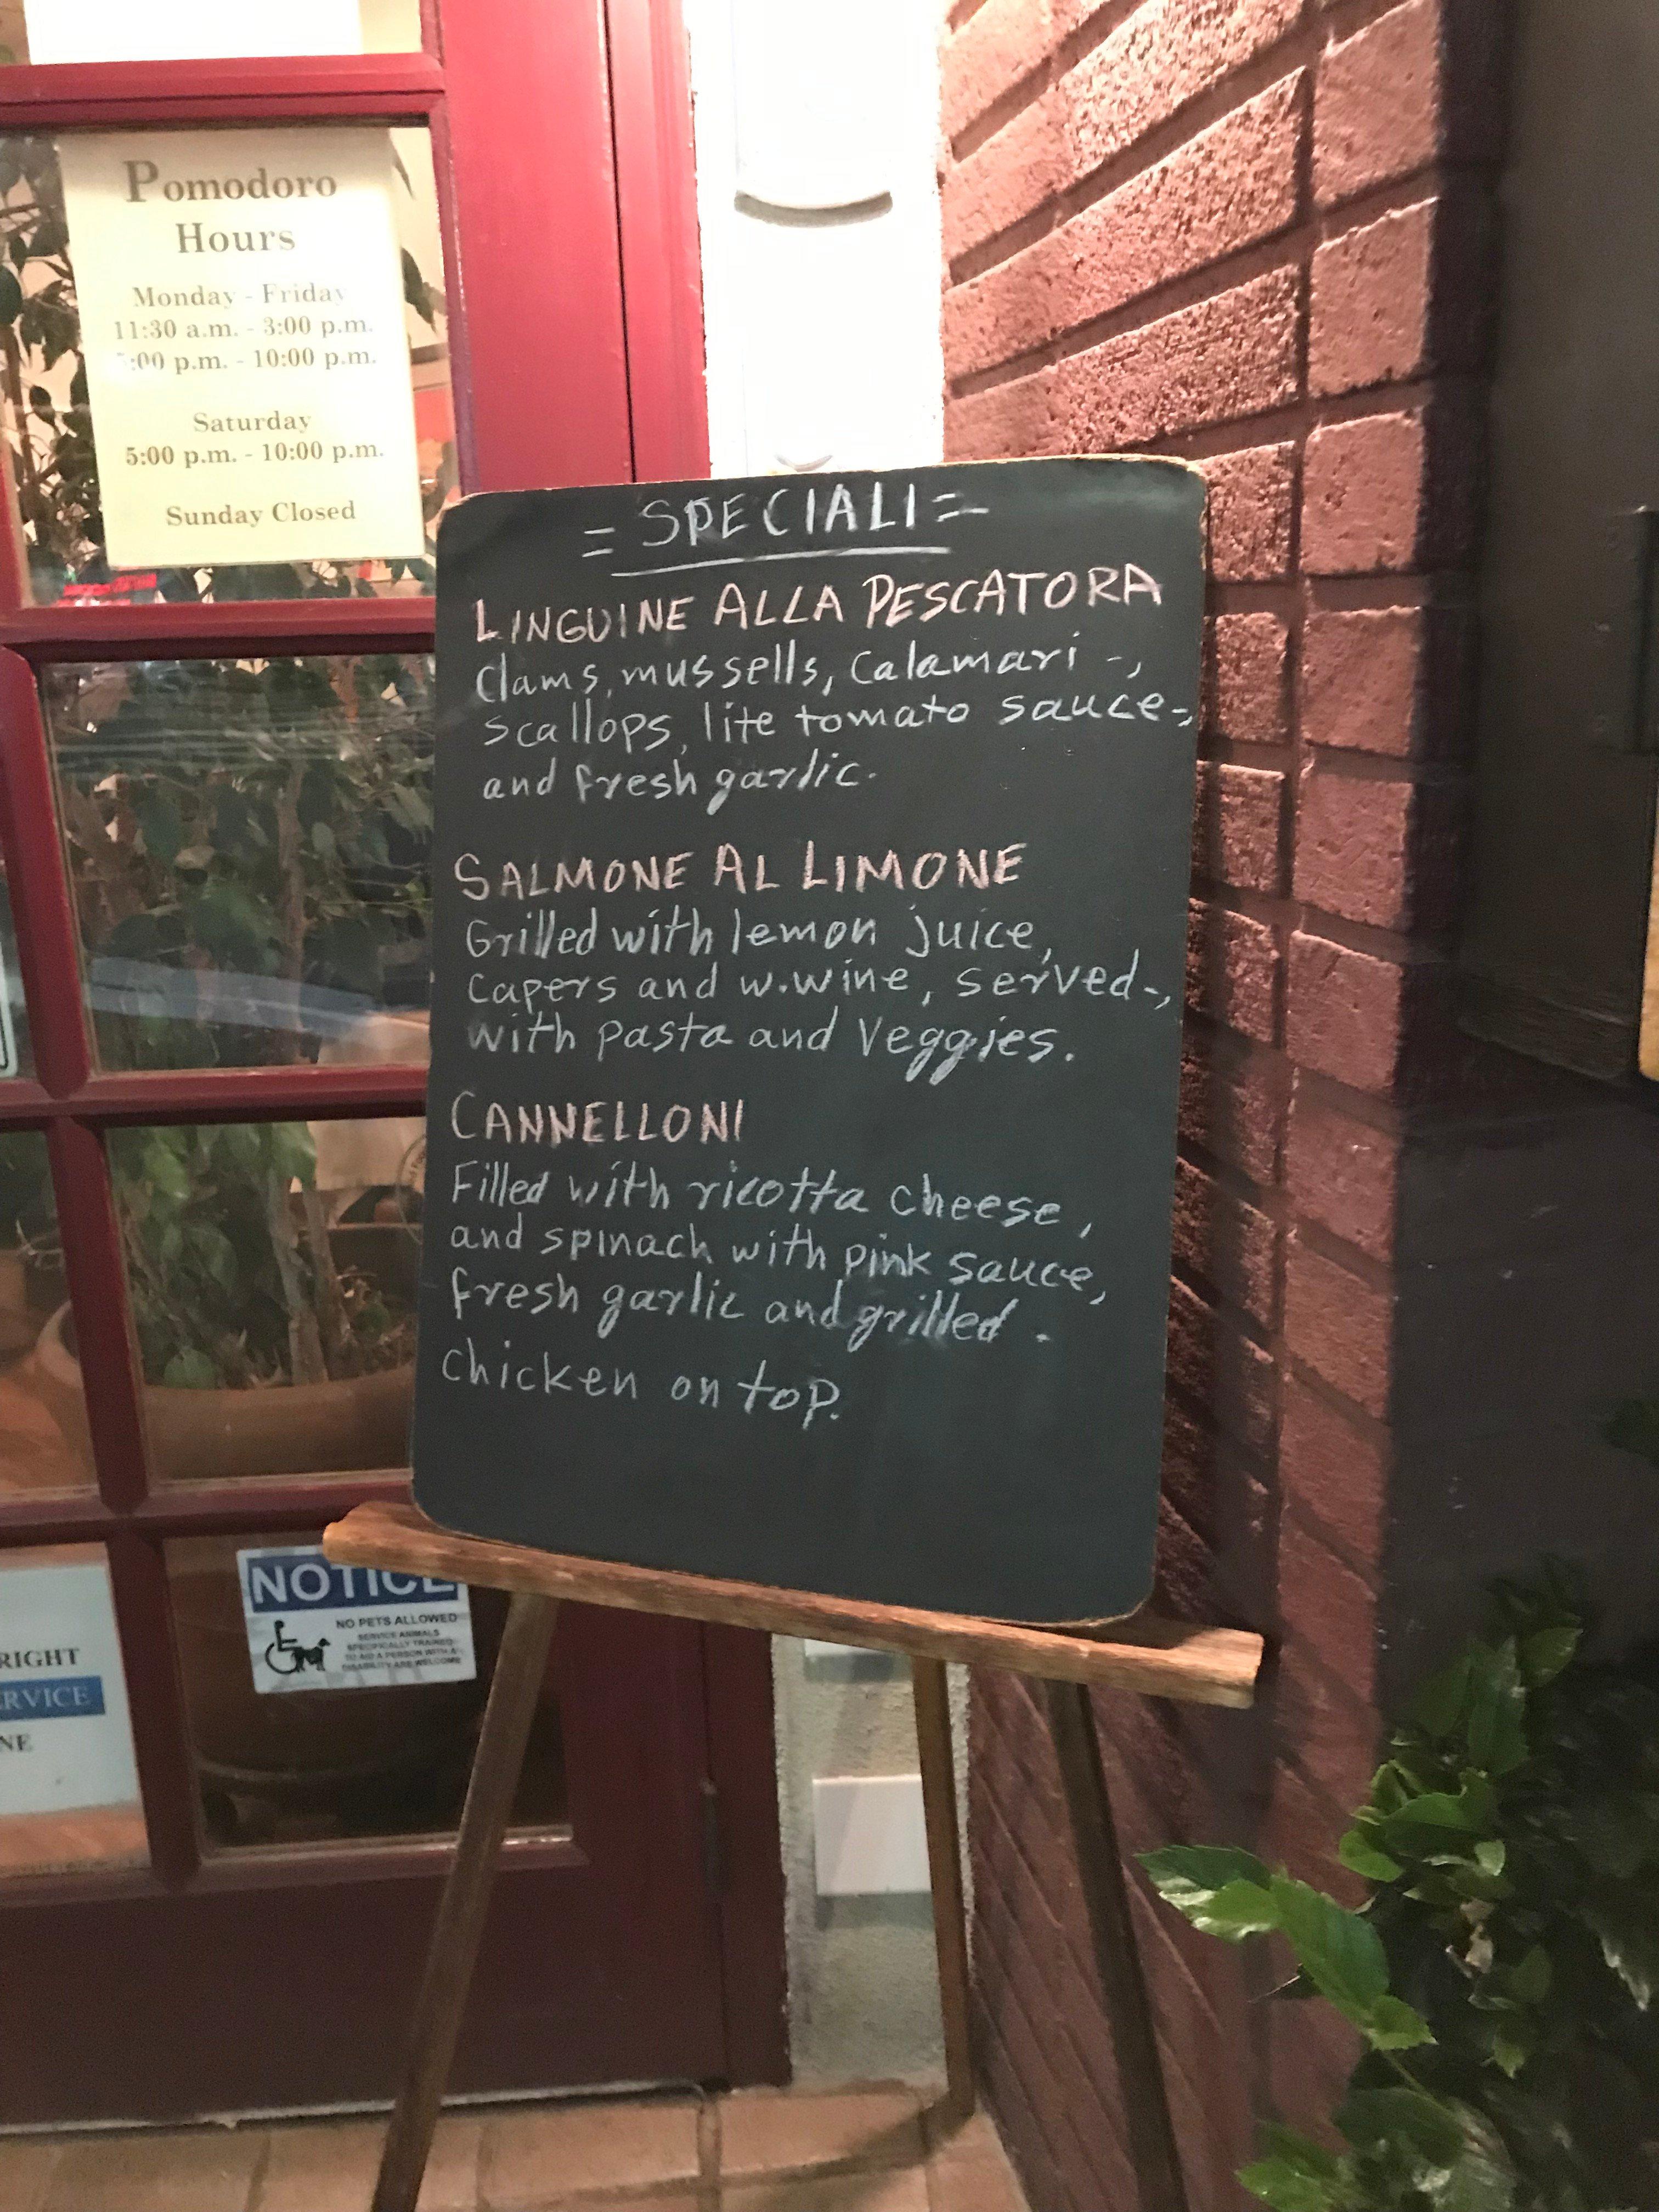 Pomodoro
Hours
Monday - Friday
11:30 a.m. - 3:00 p.m.
:00 p.m. - 10:00 p.m.
Saturday
5:00 p.m. - 10:00 p.m.
Sunday Closed
= SPECIALI =
LINGUINE ALLA PESCATORA
Clams, mussells, Calamari -,
scallops, lite tomato sauce-,
and fresh garlic.
SALMONE AL LIMONE
Grilled with lemon juice,
capers and w.wine, served-,
with pasta and Veggies.
CANNELLONI
Filled with ricotta cheese,
and spinach with pink sauce,
fresh garlic and grilled -
chicken on top.
NOTICE
NO PETS ALLOWED
SERVICE ANIMALS
SPECIFICALLY TRAINED
TO AID A PERSON WITH A
DISABILITY ARE WELCOME
RIGHT
RVICE
NE